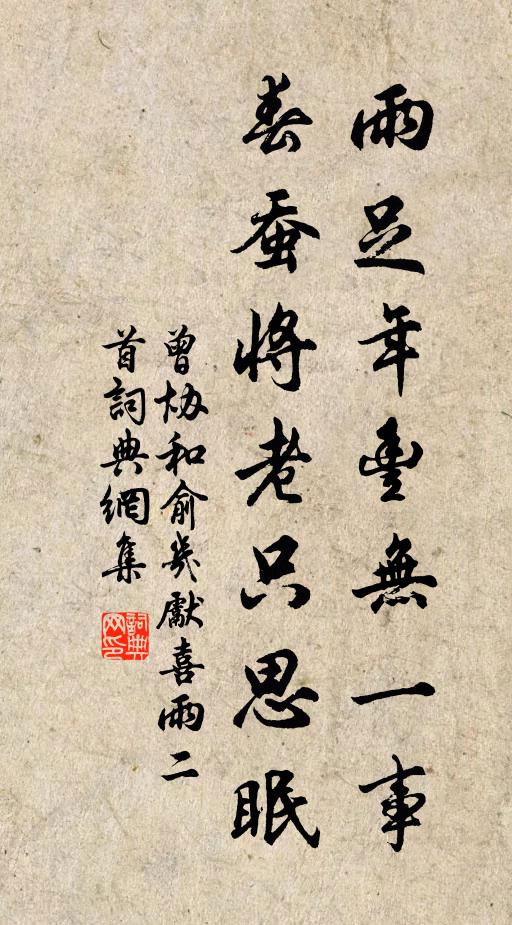 雨足年豐無一事
春蚕將老只思眠
曾协和俞㡬獻喜雨二
首詞典網集
詞典网印